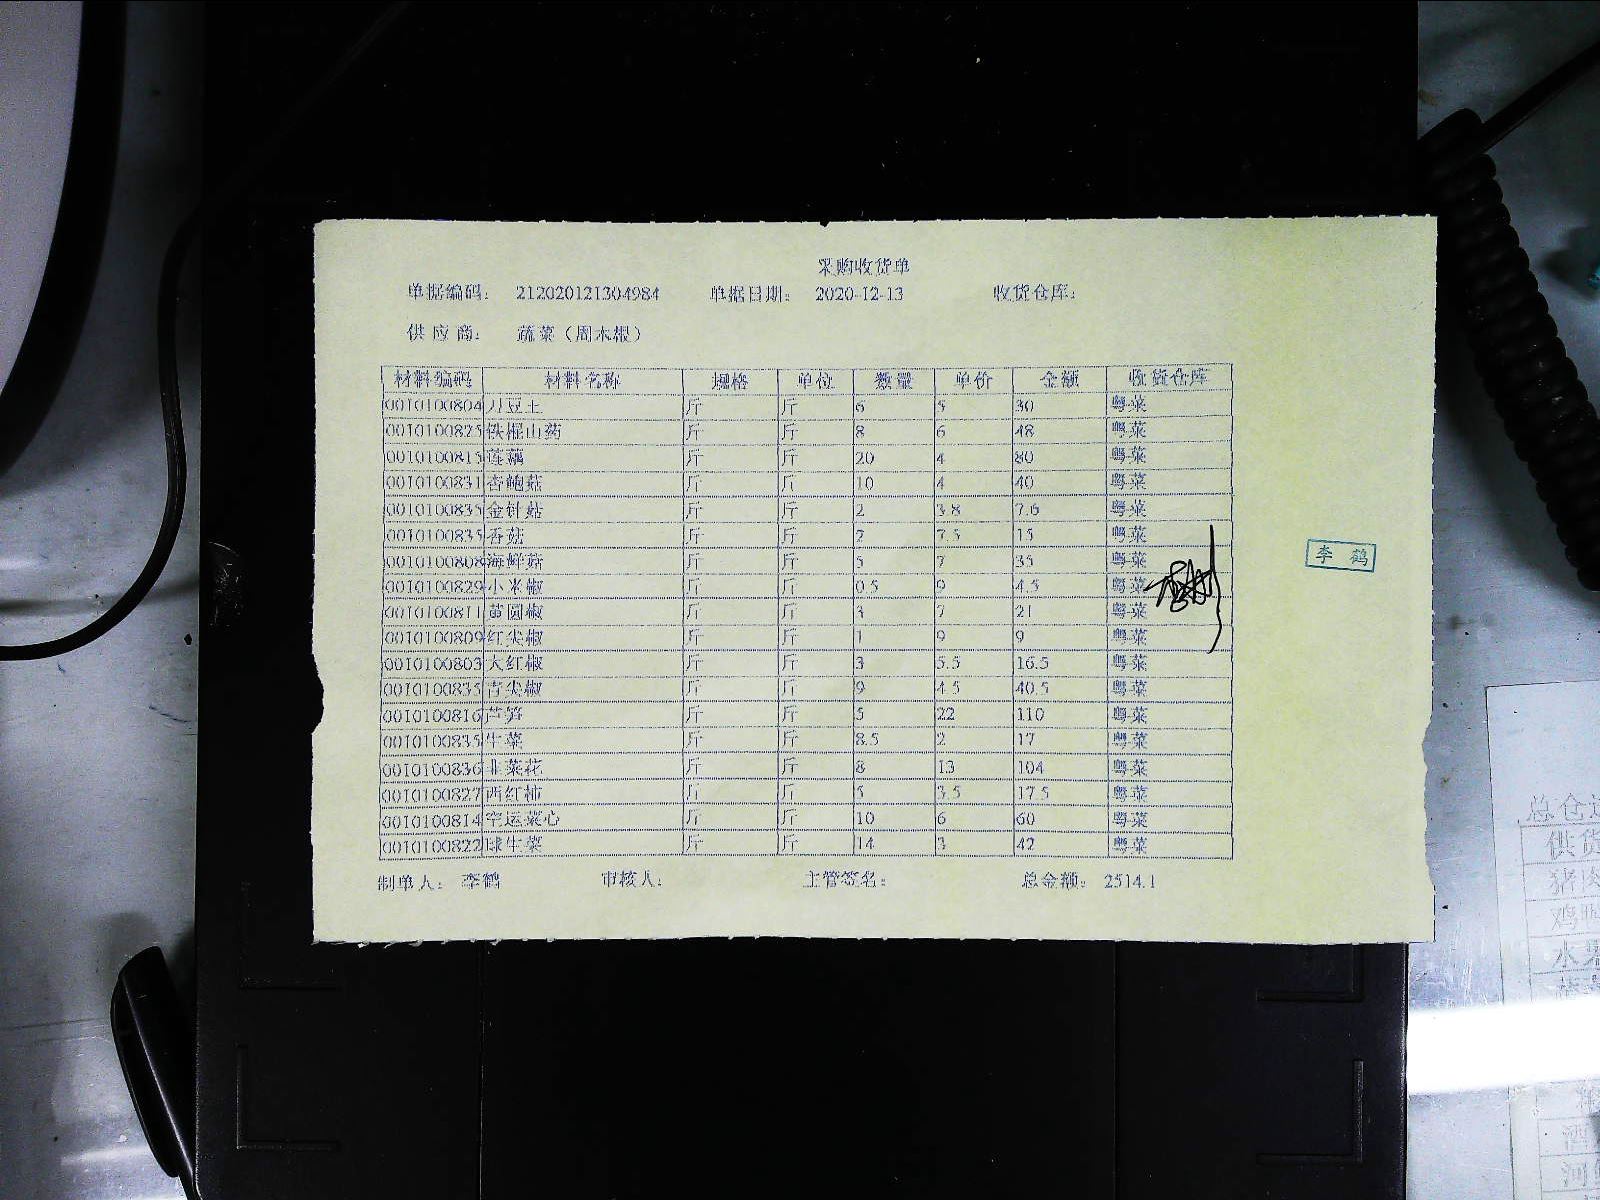 采购收货单
单据编码： 212020121304984 单据日期： 2020-12-13 收货仓库：
供应商： 蔬菜（周木根）
材料编码 材料名称 规格 单位 数量 单价 金额 收货仓库
0010100804 刀豆王 斤 斤 6 5 30 粤菜
0010100825 铁棍山药 斤 斤 8 6 48 粤菜
0010100815 莲藕 斤 斤 20 4 80 粤菜
0010100831 杏鲍菇 斤 斤 10 4 40 粤菜
0010100835 金针菇 斤 斤 2 3.8 7.6 粤菜
0010100835 香菇 斤 斤 2 7.5 15 粤菜
0010100808 海鲜菇 斤 斤 5 7 35 粤菜
0010100829 小米椒 斤 斤 0.5 9 4.5 粤菜
0010100811 黄圆椒 斤 斤 3 7 21 粤菜
0010100809 红尖椒 斤 斤 1 9 9 粤菜
0010100803 大红椒 斤 斤 3 5.5 16.5 粤菜
0010100835 青尖椒 斤 斤 9 4.5 40.5 粤菜
0010100816 芦笋 斤 斤 5 22 110 粤菜
0010100835 生菜 斤 斤 8.5 2 17 粤菜
0010100836 韭菜花 斤 斤 8 13 104 粤菜
0010100827 西红柿 斤 斤 5 3.5 17.5 粤菜
0010100814 空运菜心 斤 斤 10 6 60 粤菜
0010100822 球生菜 斤 斤 14 3 42 粤菜
制单人： 李鹤 审核人： 主管签名： 总金额： 2514.1
李鹤
总仓
供货
猪肉
鸡鸭
水果